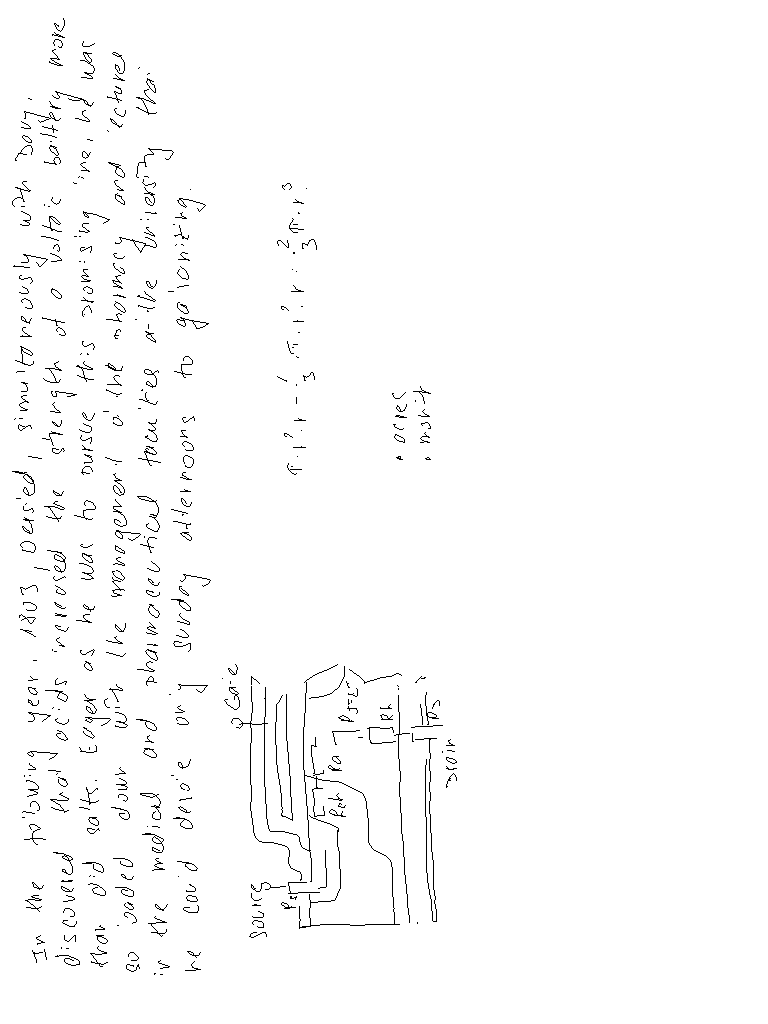 In the following year, 1803, Oersted, simultaneously with Davy,
discovered that acids increased the strength of a voltaic battery more
than did salts. Eager as he was to pursue this promising line, he was
so loaded down with the management of the pharmacy and lectures
in the medical and pharmaceutical faculties at the University that
he could devote only Sunday afternoons to galvanizing.
Source
Gate
Rs
Rch
Ra
Rh
Drain
π · r² · r - 1/3 π · r² · r = 2/3 π · r³
• acres